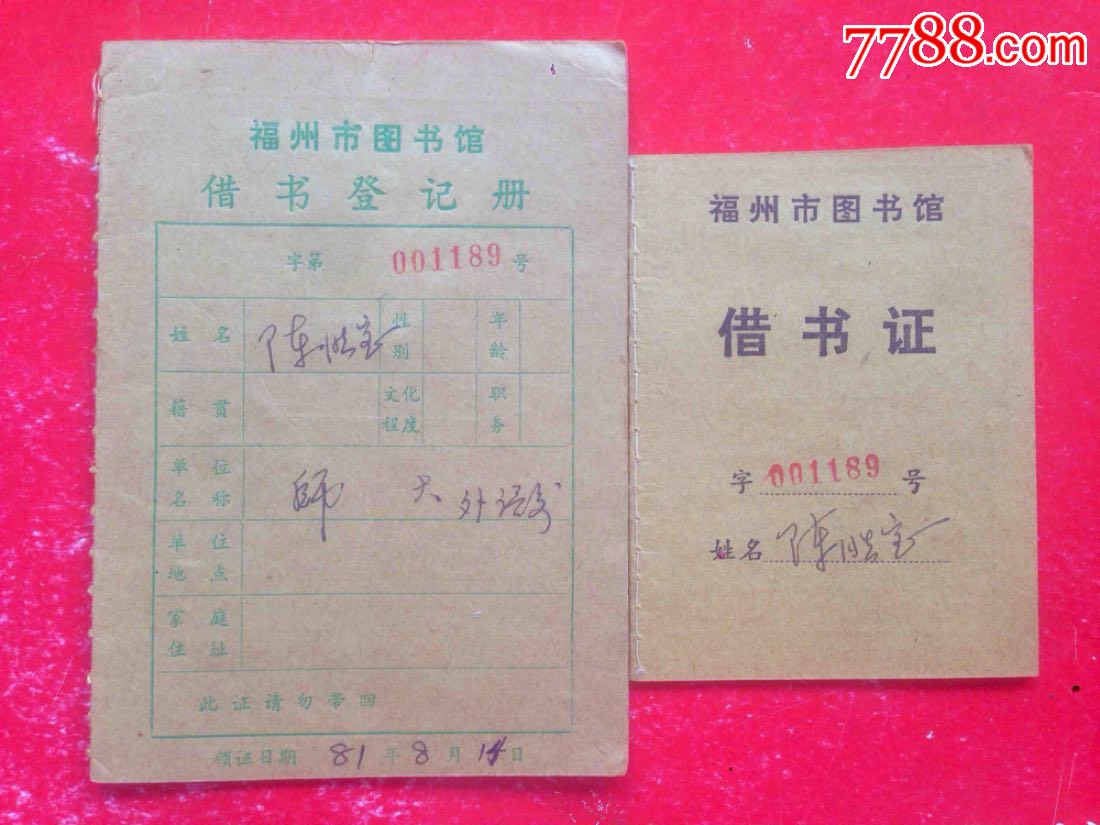 7788.com
福州市图书馆
借书登记册
字第 001189 号
姓名 陈 性别 年龄
籍贯 文化程度 职务
单位名称 师大外语
单位地点
家庭住址
此证请勿带回
领证日期 81年8月14日
福州市图书馆
借书证
字 001189 号
姓名 陈